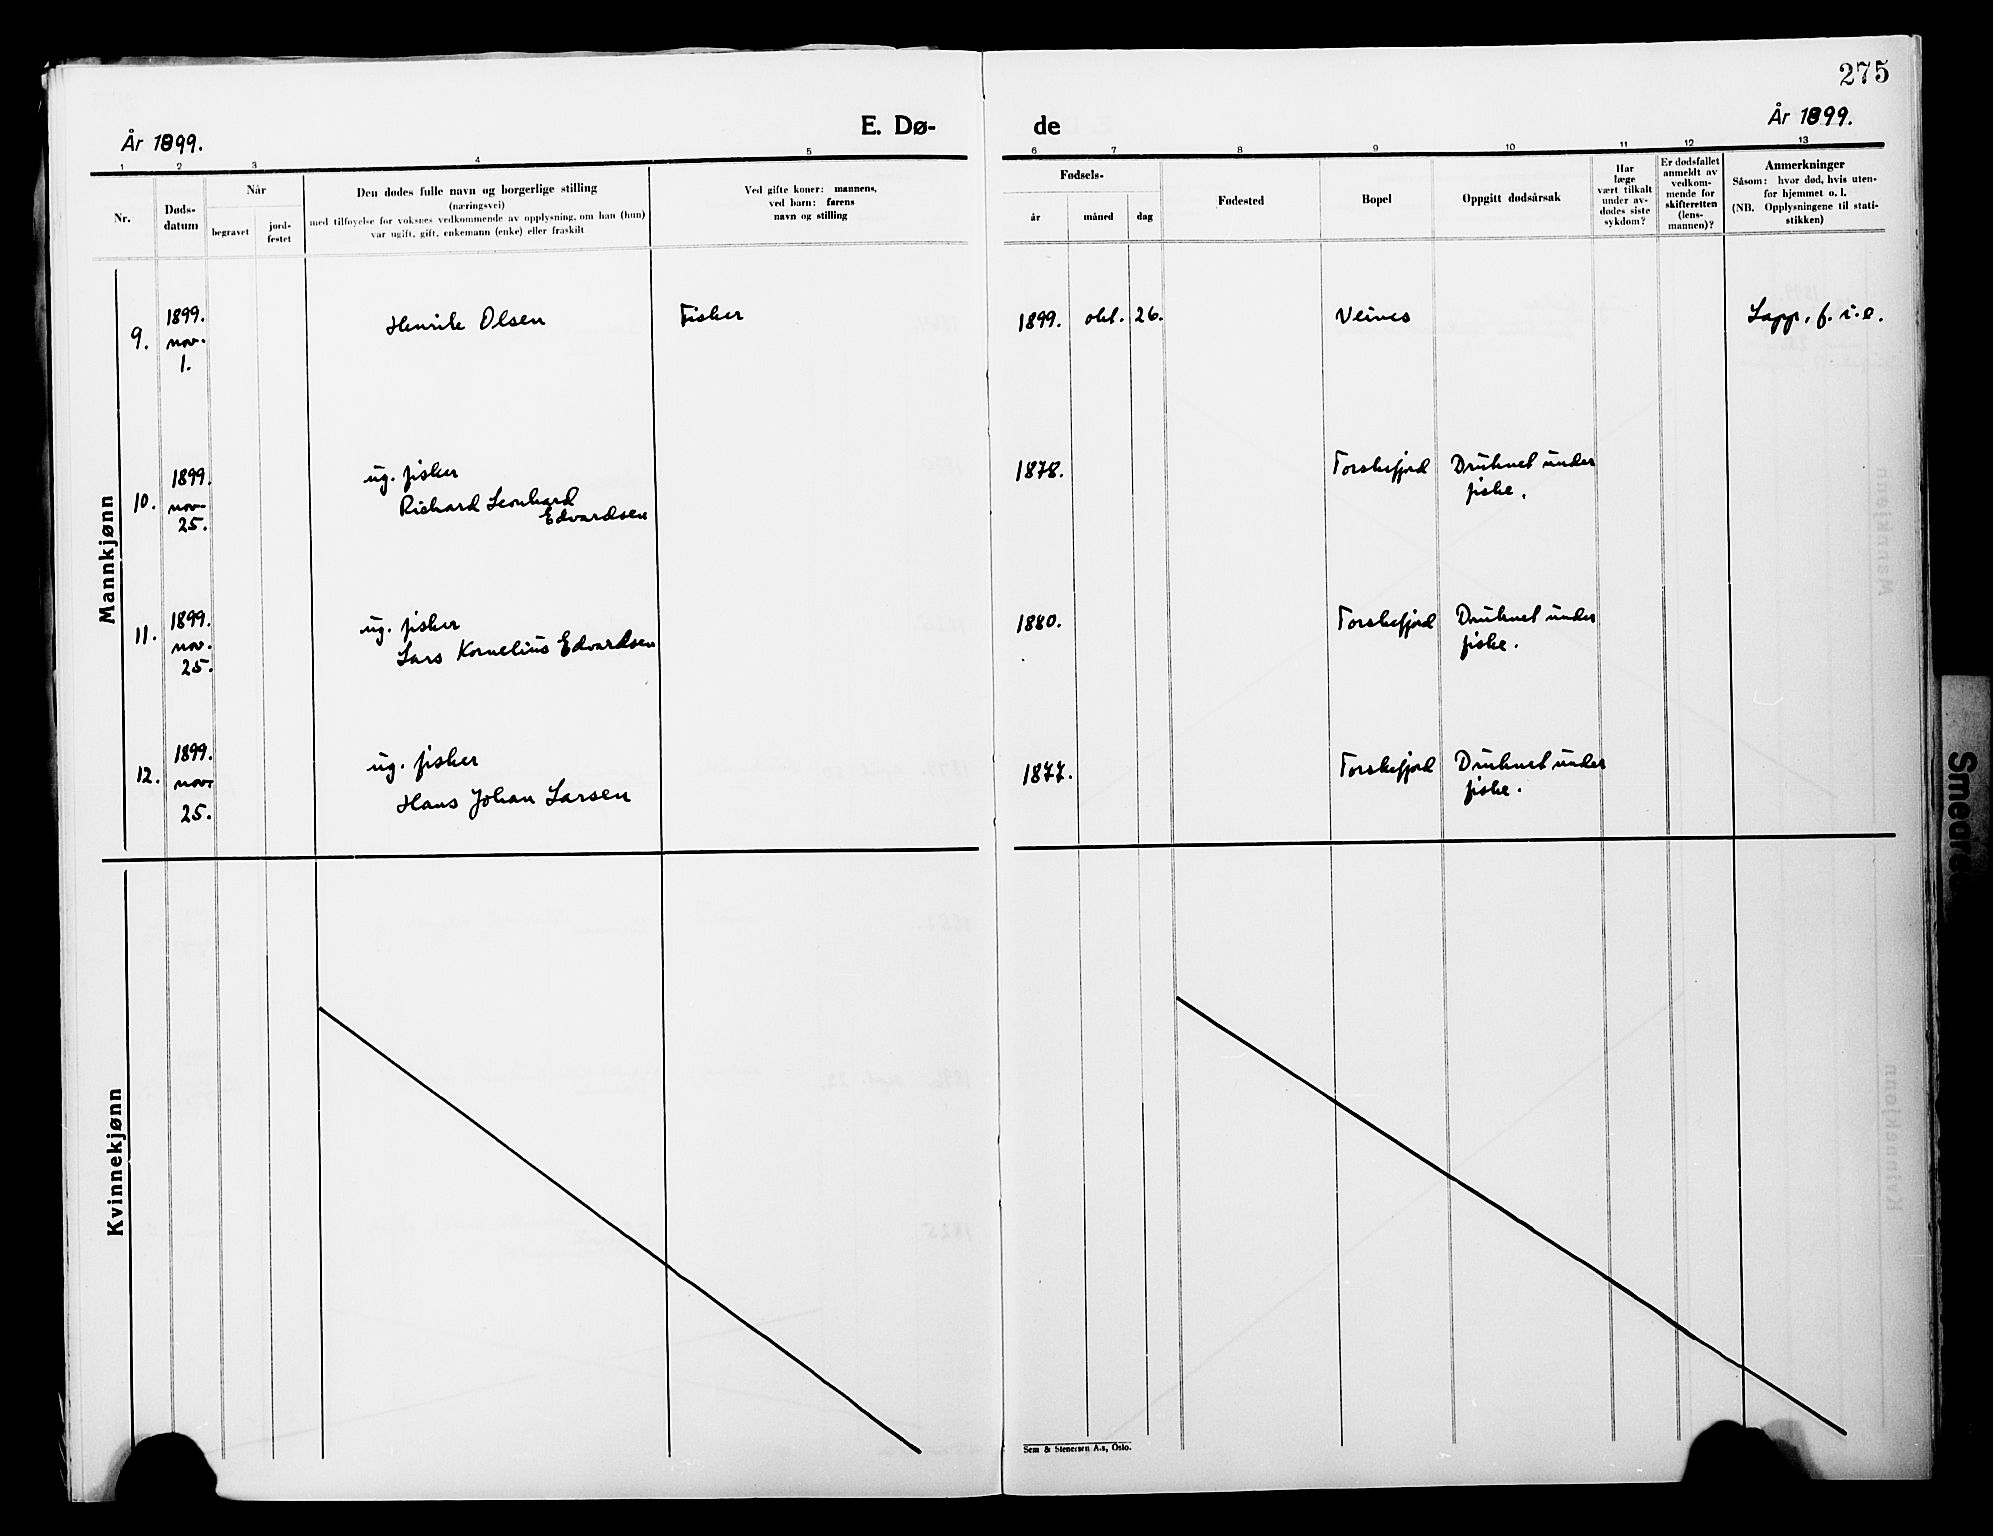 275
År 1899.
E. Dø-
de
År 1899.
1 2 3 4 5 6 7 8 9 10 11 12 13
Nr.
Døds-
datum
Når
begravet
jord-
festet
Den dødes fulle navn og borgerlige stilling
(næringsvei)
med tilføyelse for voksnes vedkommende av opplysning, om han (hun)
var ugift, gift, enkemann (enke) eller fraskilt
Ved gifte koner: mannens,
ved barn: farens
navn og stilling
Fødsels-
år
måned
dag
Fødested
Bopel
Oppgitt dødsårsak
Har
læge
vært tilkalt
under av-
dødes siste
sykdom?
Er dødsfallet
anmeldt av
vedkom-
mende for
skifteretten
(lens-
mannen)?
Anmerkninger
Såsom: hvor død, hvis uten-
for hjemmet o. l.
(NB. Opplysningene til stati-
stikken)
Mannkjønn
9.
1899.
nov.
1.
Henrik Olsen
Fisker
1899. okt. 26.
Veines
Lapp, f. i. e.
10.
1899.
nov.
25.
ug. fisker
Richard Leonhard
Edvardsen
1878.
Torskefjord
Druknet under
fiske.
11.
1899.
nov.
25.
ug. fisker
Lars Kornelius Edvardsen
1880.
Torskefjord
Druknet under
fiske.
12.
1899.
nov.
25.
ug. fisker
Hans Johan Larsen
1877.
Torskefjord
Druknet under
fiske.
Kvinnekjønn
Sem & Stenersen A.s, Oslo.